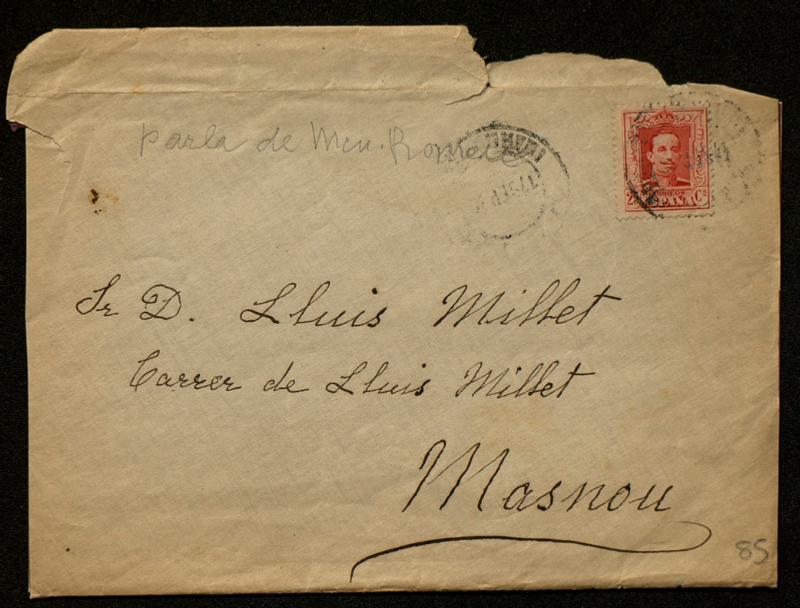 parla de Mcn. Romeu
17 SEP
25 Cs
ESPAÑA
Sr D. Lluis Millet
Carrer de Lluis Millet
Masnou
85